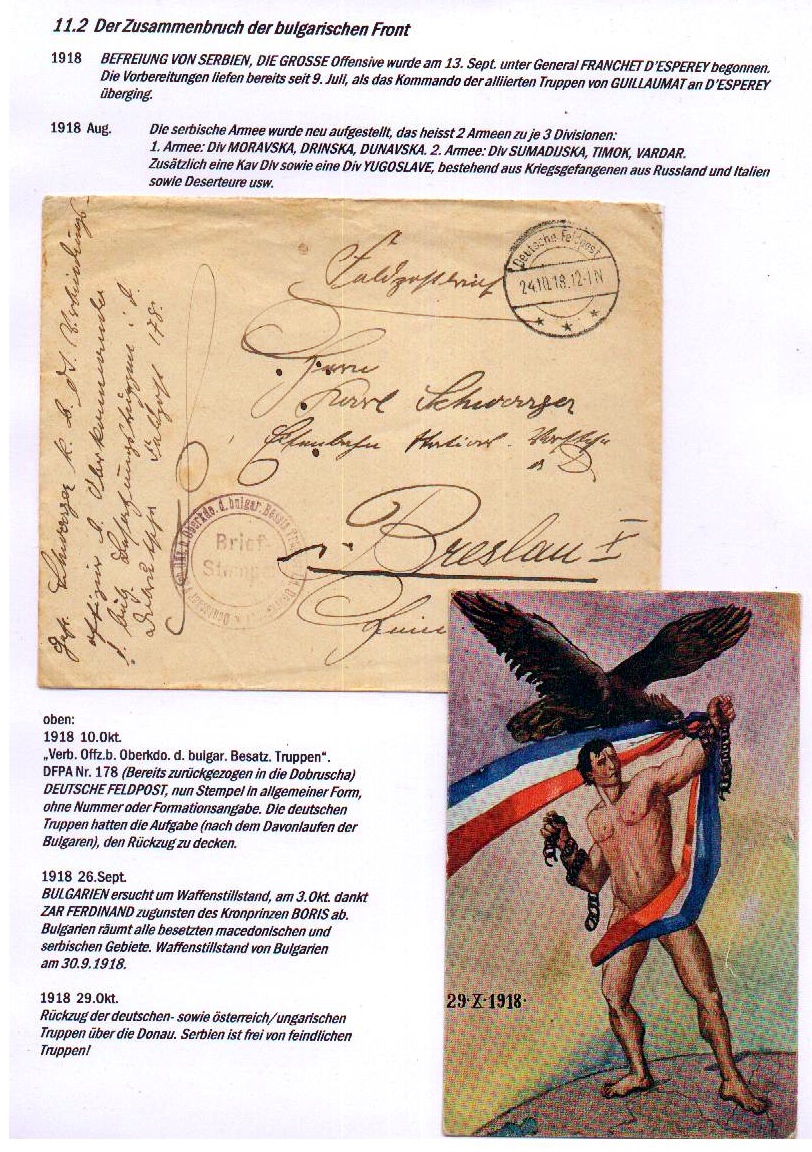 11.2 Der Zusammenbruch der bulgarischen Front
1918 BEFREIUNG VON SERBIEN, DIE GROSSE Offensive wurde am 13. Sept. unter General FRANCHET D'ESPEREY begonnen.
Die Vorbereitungen liefen bereits seit 9. Juli, als das Kommando der alliierten Truppen von GUILLAUMAT an D'ESPEREY
überging.
1918 Aug. Die serbische Armee wurde neu aufgestellt, das heisst 2 Armeen zu je 3 Divisionen:
1. Armee: Div MORAVSKA, DRINSKA, DUNAVSKA. 2. Armee: Div SUMADIJSKA, TIMOK, VARDAR.
Zusätzlich eine Kav Div sowie eine Div YUGOSLAVE, bestehend aus Kriegsgefangenen aus Russland und Italien
sowie Deserteure usw.
Deutsche Feldpost
24.10.18.12-1N
Feldpostbrief
Herrn
Karl Schwarzer
Breslau
Brief
Stempel
d. bulgar. Besatz.
Feldpost 178.
oben:
1918 10.Okt.
„Verb. Offz.b. Oberkdo. d. bulgar. Besatz. Truppen“.
DFPA Nr. 178 (Bereits zurückgezogen in die Dobruscha)
DEUTSCHE FELDPOST, nun Stempel in allgemeiner Form,
ohne Nummer oder Formationsangabe. Die deutschen
Truppen hatten die Aufgabe (nach dem Davonlaufen der
Bulgaren), den Rückzug zu decken.
1918 26.Sept.
BULGARIEN ersucht um Waffenstillstand, am 3.Okt. dankt
ZAR FERDINAND zugunsten des Kronprinzen BORIS ab.
Bulgarien räumt alle besetzten macedonischen und
serbischen Gebiete. Waffenstillstand von Bulgarien
am 30.9.1918.
1918 29.Okt.
Rückzug der deutschen- sowie österreich/ungarischen
Truppen über die Donau. Serbien ist frei von feindlichen
Truppen!
29·X·1918·